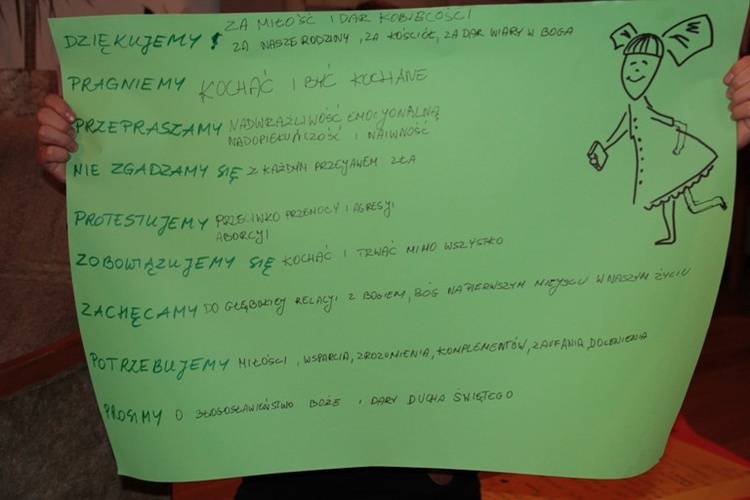 ZA MIŁOŚĆ I DAR KOBIECOŚCI
DZIĘKUJEMY! ZA NASZE RODZINY, ZA KOŚCIÓŁ, ZA DAR WIARY W BOGA
PRAGNIEMY KOCHAĆ I BYĆ KOCHANE
PRZEPRASZAMY NADWRAŻLIWOŚĆ EMOCYONALNĄ
NADOPIEKUŃCZOŚĆ I NAIWNOŚĆ
NIE ZGADZAMY SIĘ Z KAŻDYM PRZEJAWEM ZŁA
PROTESTUJEMY PRZECIWKO PRZEMOCY I AGRESJI
ABORCJI
ZOBOWIĄZUJEMY SIĘ KOCHAĆ I TRWAĆ MIMO WSZYSTKO
ZACHĘCAMY DO GŁĘBOKIEJ RELACJI Z BOGIEM, BÓG NA PIERWSZYM MIEJSCU W NASZYM ŻYCIU
POTRZEBUJEMY MIŁOŚCI, WSPARCIA, ZROZUMIENIA, KOMPLEMENTÓW, ZAUFANIA, DOCENIENIA
PROSIMY O BŁOGOSŁAWIEŃSTWO BOŻE I DARY DUCHA ŚWIĘTEGO